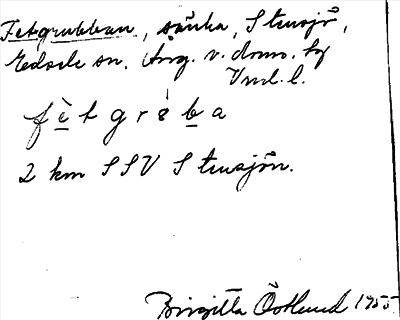 Fetgrubban, sänka, Stensjö,
Edsele sn. Ång. v. dom. hg
Vnl. l.
f è t g r è b a
2 km SSV Stensjön.
Birgitta Östlund 1955